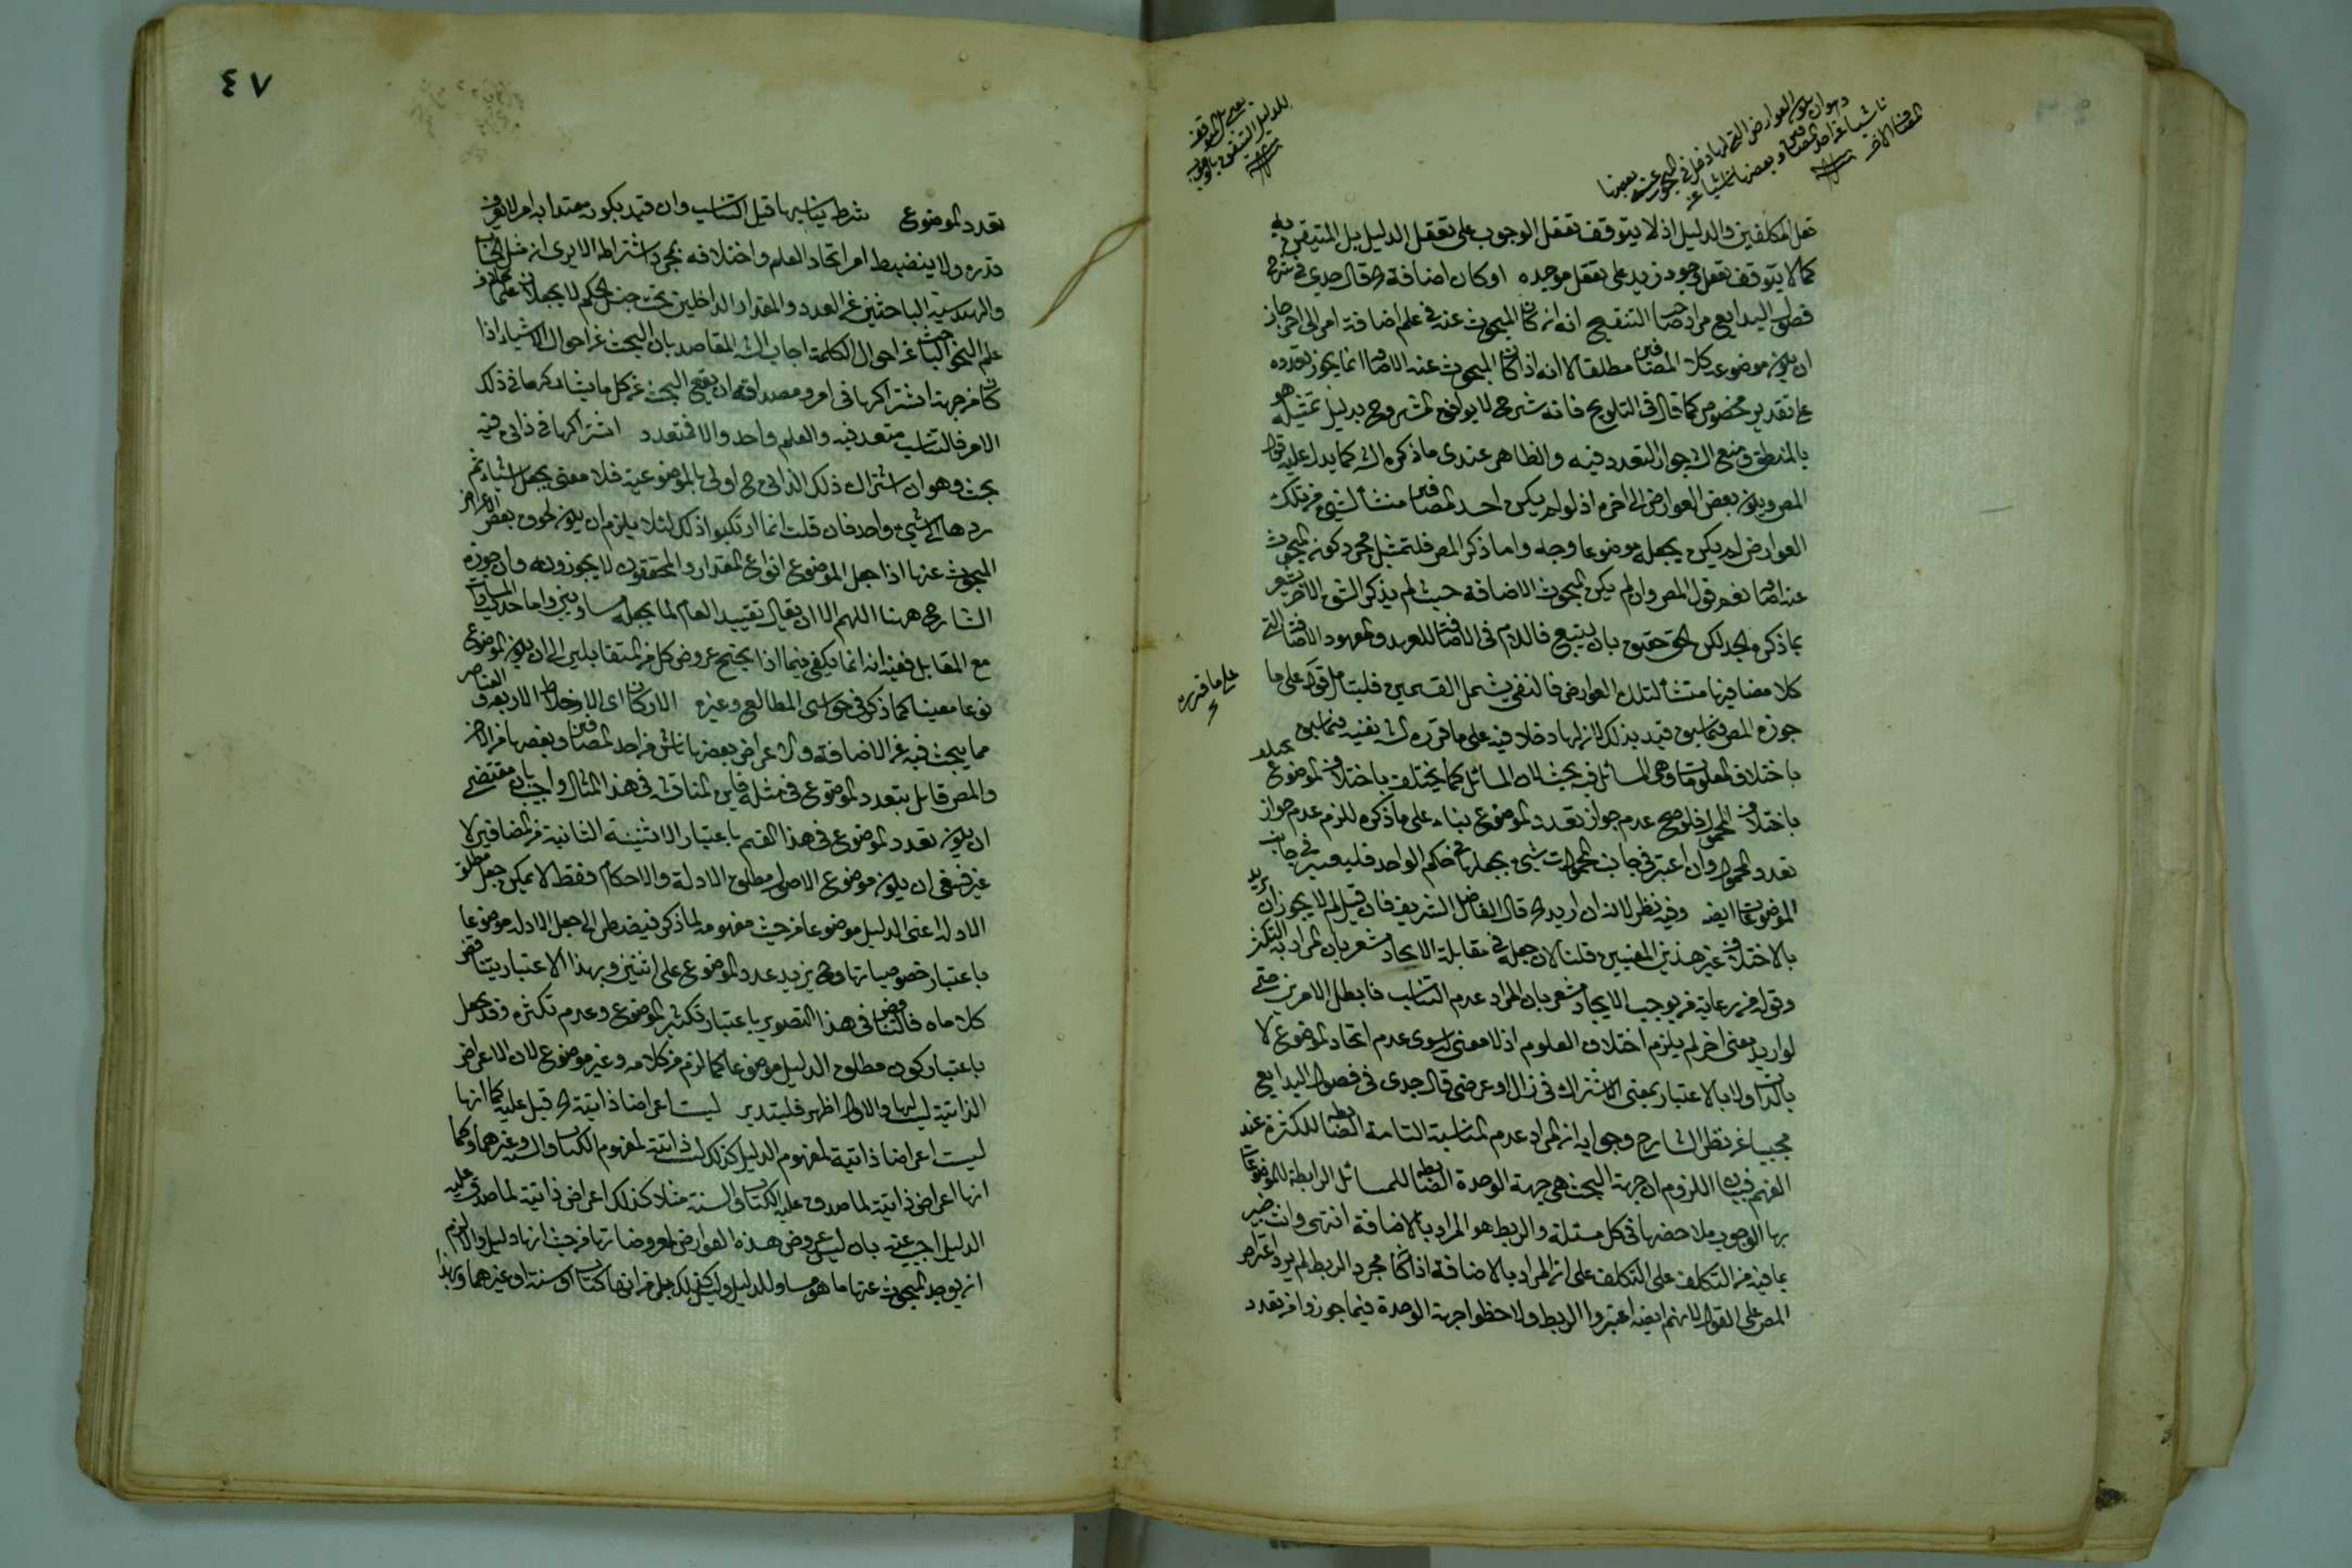 وهو ان يكون العوارض التي لها دخل في المبحوث عنه بعضها
ناشيا عن احد المضافين وبعضها ناشيا عن
المضاف الاخر
للدليل
فعل المكلفين والدليل اذ لا يتوقف تعقل الوجوب على تعقل الدليل بل المتيقن به
كما لا يتوقف تعقل وجود زيد على تعقل موجده او كان اضافة قال جدي في شرح
فصول البدايع مراد صاحب التنقيح انه ان كان المبحوث عنه في علم اضافة امر الى اخر جاز
ان يكون موضوعه كلا المضافين مطلقا لا انه اذا كان المبحوث عنه الاضافة انما يجوز تعدده
على تقدير مخصوص كما قال في التلويح فانه شرح لا يوافق المشروح بدليل تمثيله هو
بالمنطق ومنع الش جواز التعدد فيه والظاهر عندي ما ذكره الش كما يدل عليه قول
المص ويكون بعض العوارض الى اخره اذ لو لم يكن احد المضافين منشأ لشيء من تلك
العوارض لم يكن يجعله موضوعا وجه واما ذكر المص فلتمثيل مجرد كونه المبحوث
عنه اضافة نعم قول المص وان لم يكن المبحوث الاضافة حيث لم يذكر الشق الاخر يشعر
بما ذكره الجد لكن الحق حقيق بان يتبع فاللام في الاضافة للعهد والمعهود الاضافة التي
كلا مضافيها منشأ لتلك العوارض فالنفي يشمل القسمين فليتأمل قوله على ما
على ما قرره
جوزه المص فيما سبق قيد بذلك لان لهاد خلاد فيه على ما قرره الش بقيد فيما سبق
باختلاف المعلومات وهي المسائل فيه بحث لان المسائل كما يختلف باختلاف الموضوع يختلف
باختلاف المحمول فلو صح عدم جواز تعدد الموضوع بناء على ما ذكره للزم عدم جواز
تعدد المحمول وان اعتبر في جانب المحمولات شيء يجعلها في حكم الواحد فليعتبر في جانب
الموضوعات ايضا وفيه نظر لانه ان اريد قال الفاضل الشريف فان قيل لم لا يجوز ان يريد
بالاختلاف غير هذين المعنيين قلنا لان جعله في مقابلة الاتحاد مشعر بان المراد به التكثر
وقوله من رعاية ما يوجب الاتحاد مشعر بان المراد عدم التناسب فابطل الامرين حتى
لو اريد معنى اخر لم يلزم اختلاف العلوم اذ لا معنى له سوى عدم اتحاد الموضوع لا
بالذات ولا بالاعتبار بمعنى الاشتراك في ذاتي او عرضي قال جدي في فصول البدايع
مجيبا عن نظر الشارح وجوابه ان المراد عدم المناسبة التامة الضابطة للكثرة عند
الفهم فبيان اللزوم ان جهة البحث هي جهة الوحدة الضابطة للمسائل الرابطة للموضوعات
بها الوجوب ملاحظتها في كل مسئلة والربط هو المراد بالاضافة انتهى وانت خبير
بما فيه من التكلف على التكلف على ان المراد بالاضافة اذا كان مجرد الربط لم يرد اعتراض
المص على القوم لانهم ايضا اعتبروا الربط ولاحظوا جهة الوحدة فيما جوزوا من تعدد
٤٧
تعدد الموضوع شرط تناسبها قيل التناسب وان قيد بكونه معتدا به امر لا يعرف
قدره ولا ينضبط امر اتحاد العلم واختلافه بمجرد اشتراطه الا يرى ان مثل الحساب
والهندسة الباحثين عن العدد والمقدار الداخلين تحت جنس الكم لا يجعلان علما
علم النحو الباحث عن احوال الكلمة اجاب الش المقاصد بان البحث عن احوال الاشياء اذا
كان من جهة اشتراكها في امر ومصداقه ان يقع البحث عن كل ما يشاركها في ذلك
الامر فالتناسب متعد فيه والعلم واحد والا فمتعدد اشتراكها في ذاتي فيه
بحث وهو ان اشتراك ذلك الذاتي ح اولى بالموضوعية فلا معنى لجعل اشياء ثم
ردها الى شيء واحد فان قلت انما ارتكبوا ذلك لئلا يلزم ان يكون لحوق بعض الاعراض
المبحوث عنها اذا جعل الموضوع انواع المقدار والمحققون لا يجوزونه وان جوزه
الشارح ههنا اللهم الا ان يقال تقييد العام لما يجعله مساويا واما حديث المساواة
مع المقابل ففيه انه انما يكفي فيما اذا يحتج عروض كل من المتقابلين الى ان يكون الموضوع
نوعا معينا كما ذكر في حواشي المطالع وغيره الاركان اي الاخلاط الاربعة والعناصر
مما يبحث فيه عن الاضافة والاعراض بعضها ناش من احد المضافين وبعضها من الاخر
والمص قائل بتعدد الموضوع في مثله فاين المناقشة في هذا المثال واجيب بان مقتضى
ان يكون تعدد الموضوع في هذا القسم باعتبار الاثنينية الثانية من المضافين لا
غير فينبغي ان يكون موضوع الاصول مطلق الادلة والاحكام فقط لا يمكن جعل مطلق
الادلة اعني الدليل موضوعا من حيث مفهومه لما ذكر فيضطر الى جعل الادلة موضوعا
باعتبار خصوصياتها وح يزيد عدد الموضوع على اثنين وبهذا الاعتبار يتناقض
كلاماه فالتناقض في هذا التصوير باعتبار تكثير الموضوع وعدم تكثره وقد يجعل
باعتبار كون مطلق الدليل موضوعا كما لزم من كلامه وغير موضوع لان الاعراض
الذاتية ليست لها والاول اظهر فليتدبر ليست اعراضا ذاتية له قيل عليه كما انها
ليست اعراضا ذاتية لمفهوم الدليل كذلك ليست ذاتية لمفهوم الكتاب والسنة وغيرهما وكما
انها اعراض ذاتية لما صدق عليه الكتاب والسنة مثلا كذلك اعراض ذاتية لما صدق عليه
الدليل اجيب عنه بان ليس عروض هذه العوارض لمعروضاتها من حيث انها دليل والا لزم
ان يوجد المبحوث عنها ما هو مساو للدليل وليس كذلك بل من انها كتاب او سنة او غيرهما وبهذا